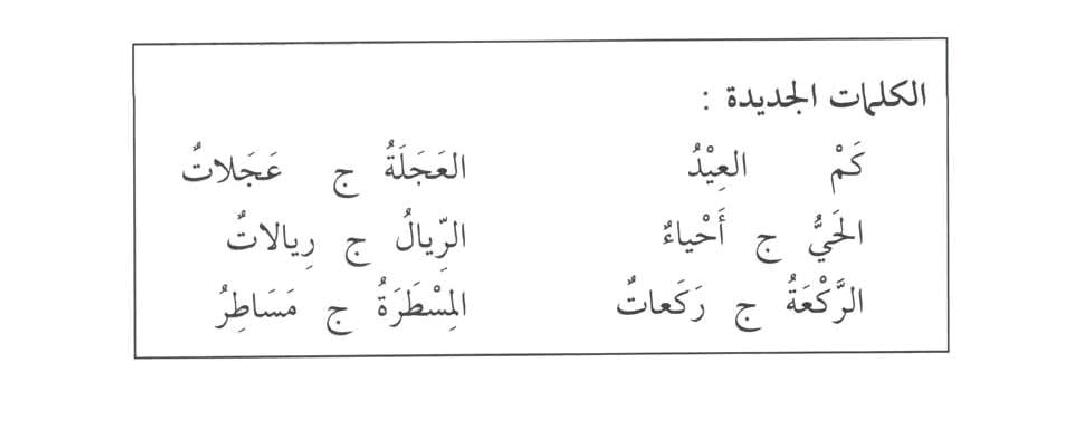 الكلمات الجديدة :
كَمْ العِيْدُ العَجَلَةُ ج عَجَلاتٌ
الحَيُّ ج أَحْياءٌ الرِّيالُ ج رِيالاتٌ
الرَّكْعَةُ ج رَكَعاتٌ المِسْطَرَةُ ج مَسَاطِرُ